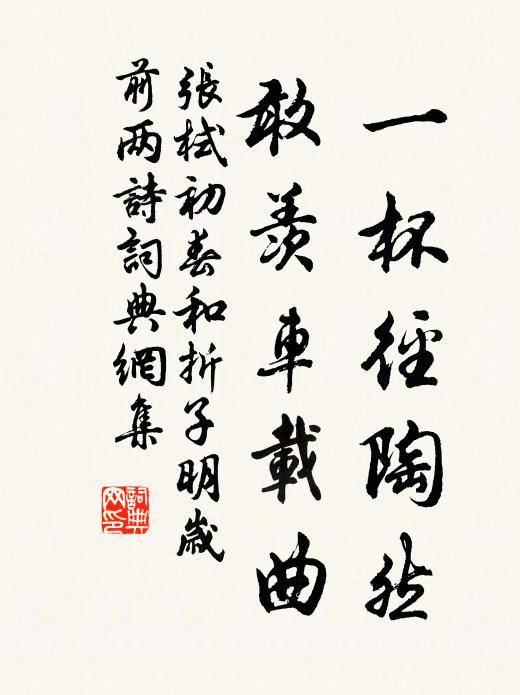 一杯徑陶然
敢羨車載曲
張栻初春和折子明歲
前两詩詞典網集
詞典
网印